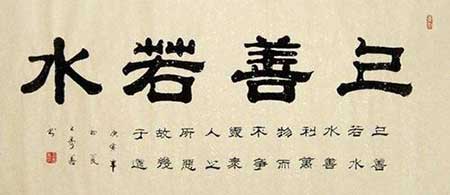 上善若水
上善
若水
水善
利萬
物而
不爭
處眾
人之
所惡
故幾
于道
庚寅